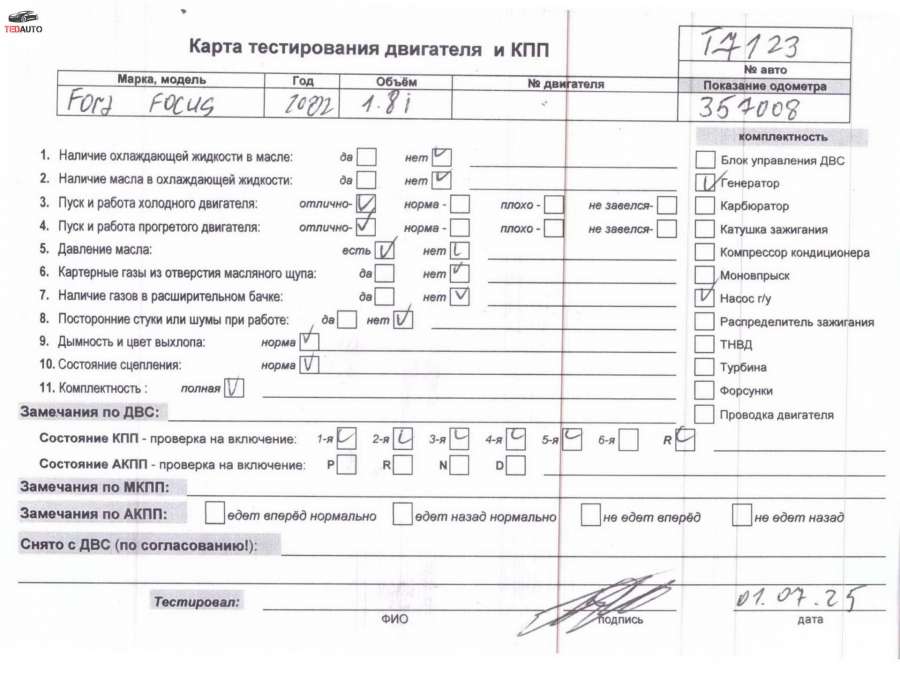 TEDAUTO
Карта тестирования двигателя и КПП
T7123
№ авто
Марка, модель Год Объём № двигателя Показание одометра
Ford Focus 2002 1.8i 357008
комплектность
1. Наличие охлаждающей жидкости в масле: да нет
Блок управления ДВС
2. Наличие масла в охлаждающей жидкости: да нет
Генератор
3. Пуск и работа холодного двигателя: отлично- норма - плохо - не завелся-
Карбюратор
4. Пуск и работа прогретого двигателя: отлично- норма - плохо - не завелся-
Катушка зажигания
5. Давление масла: есть нет
Компрессор кондиционера
6. Картерные газы из отверстия масляного щупа: да нет
Моновпрыск
7. Наличие газов в расширительном бачке: да нет
Насос г/у
8. Посторонние стуки или шумы при работе: да нет
Распределитель зажигания
9. Дымность и цвет выхлопа: норма
ТНВД
10. Состояние сцепления: норма
Турбина
11. Комплектность : полная
Форсунки
Замечания по ДВС:
Проводка двигателя
Состояние КПП - проверка на включение: 1-я 2-я 3-я 4-я 5-я 6-я R
Состояние АКПП - проверка на включение: P R N D
Замечания по МКПП:
Замечания по АКПП: едет вперёд нормально едет назад нормально не едет вперёд не едет назад
Снято с ДВС (по согласованию!):
Тестировал: 01.07.25
ФИО подпись дата